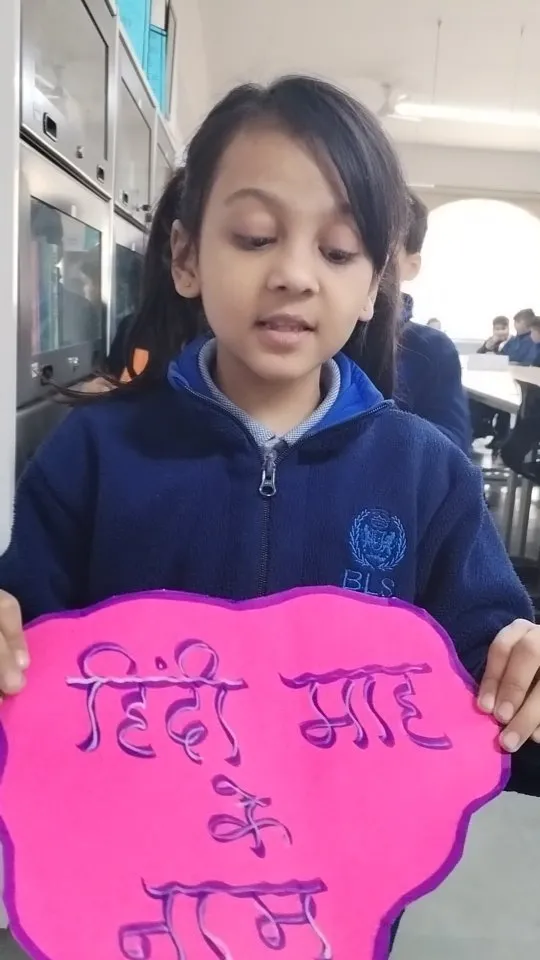 BLS
हिंदी माह
के
नाम